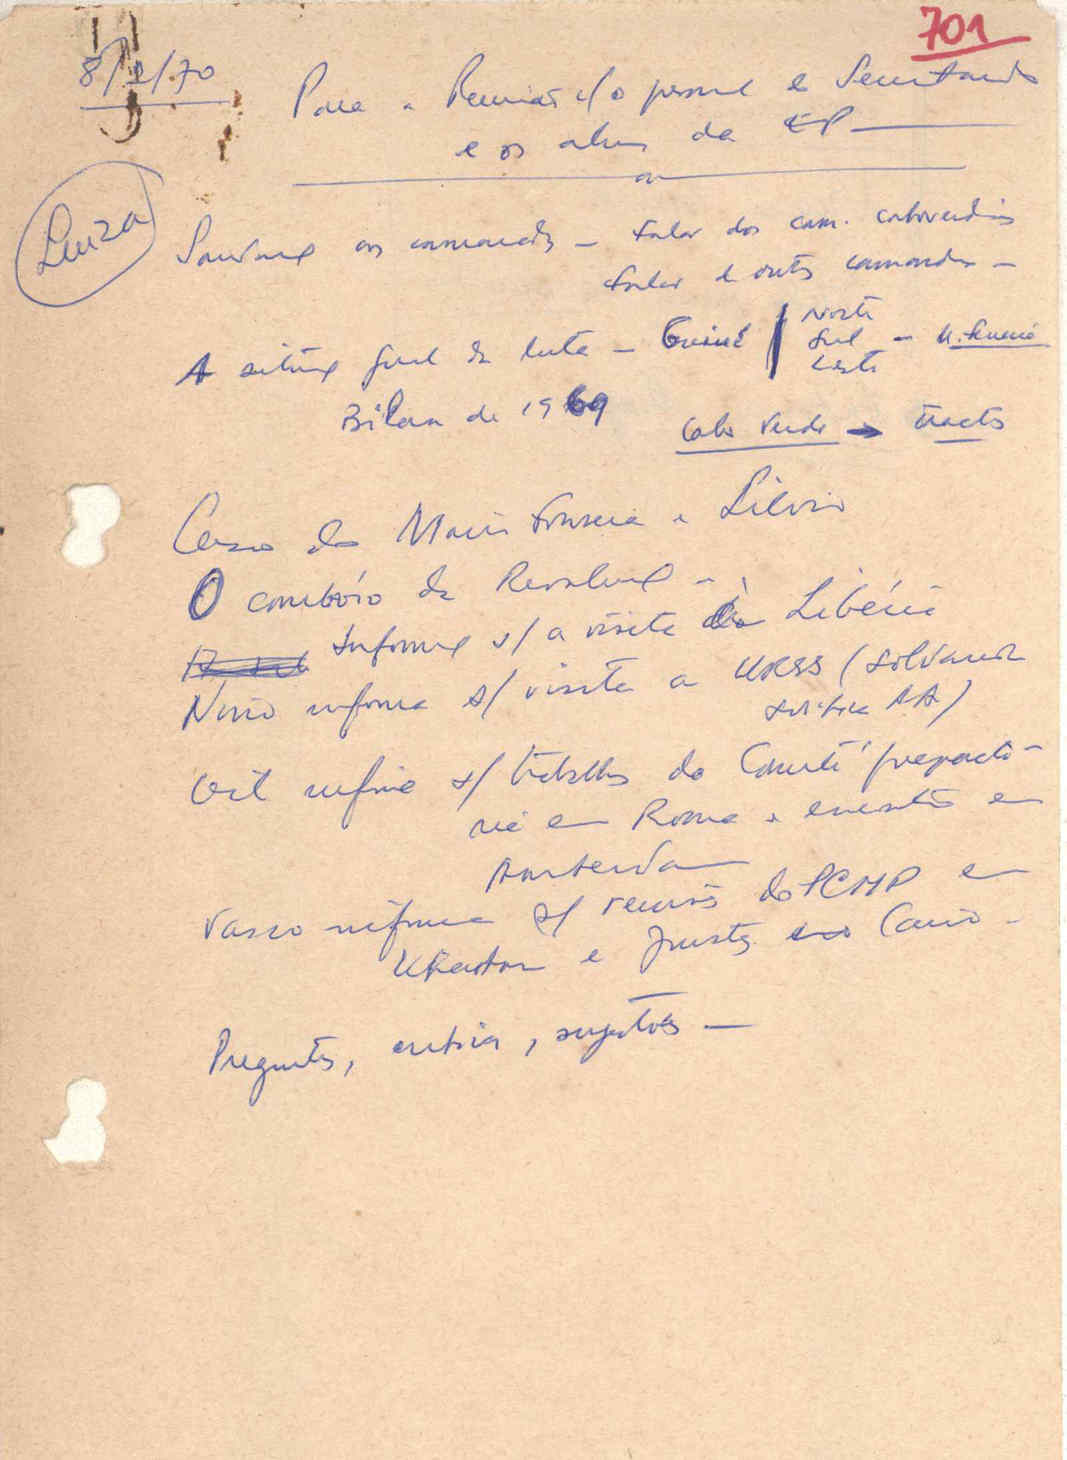 701
8/2/70
Para a Reunião c/ o pessoal e Secretariado
e os alunos da EP
Luiza
Saudação aos camaradas – Falar dos cam. caboverdianos
Falar e outros camaradas –
A situação geral da luta – Guiné Norte
Sul –
Leste
Bilan de 1969
Cabo Verde → tracts
Caso do Mário Fonseca e Sílvio
O comboio da Revolução –
Informação s/ a visita à Libéria
Nino informa s/ visita a URSS (Solidariedade
AA)
Gil informa s/ trabalhos do Comité preparató-
rio em Roma e em
Amsterdam
Vasco informa s/ reunião do em
Khartoum e Cairo –
Perguntas, críticas, sugestões –